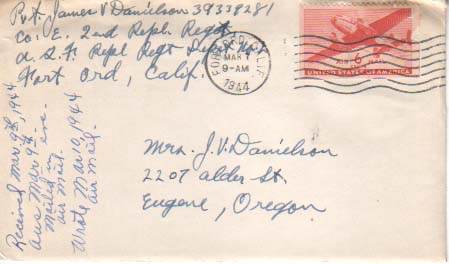 Pvt. James V Danielson 39338281
Co. E. 2nd Repl. Regt
A.S.F. Repl Regt Depot No.
Fort Ord, Calif.
FORT ORD, CALIF.
MAR 7
9-AM
1944
6¢
AIR MAIL
UNITED STATES OF AMERICA
Mrs. J.V. Danielson
2207 alder St.
Eugene, Oregon
Received Mar 9th, 1944
ans Mar 9th eve.
Mailed in
air mail.
Wrote Mar 10, 1944
air mail.